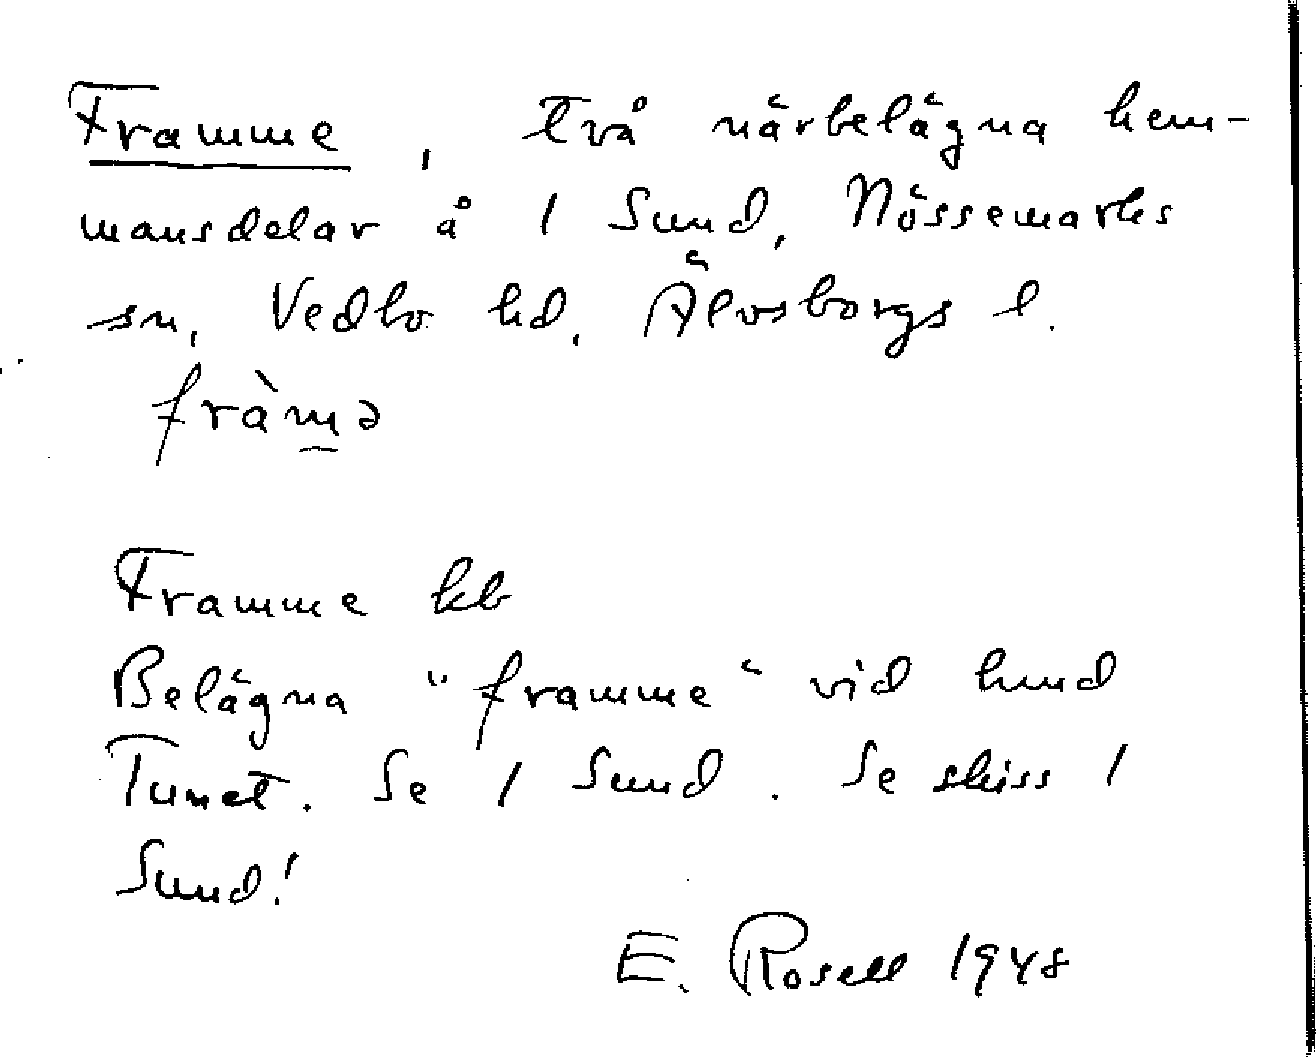 Framme, två närbelägna hem-
mansdelar å 1 Sund, Nössemarks
sn, Vedbo hd, Älvsborgs l.
fràm̲ə
Framme kb
Belägna "framme" vid
Tunet. Se 1 Sund. Se skiss 1
Sund!
E. Rosell 1948